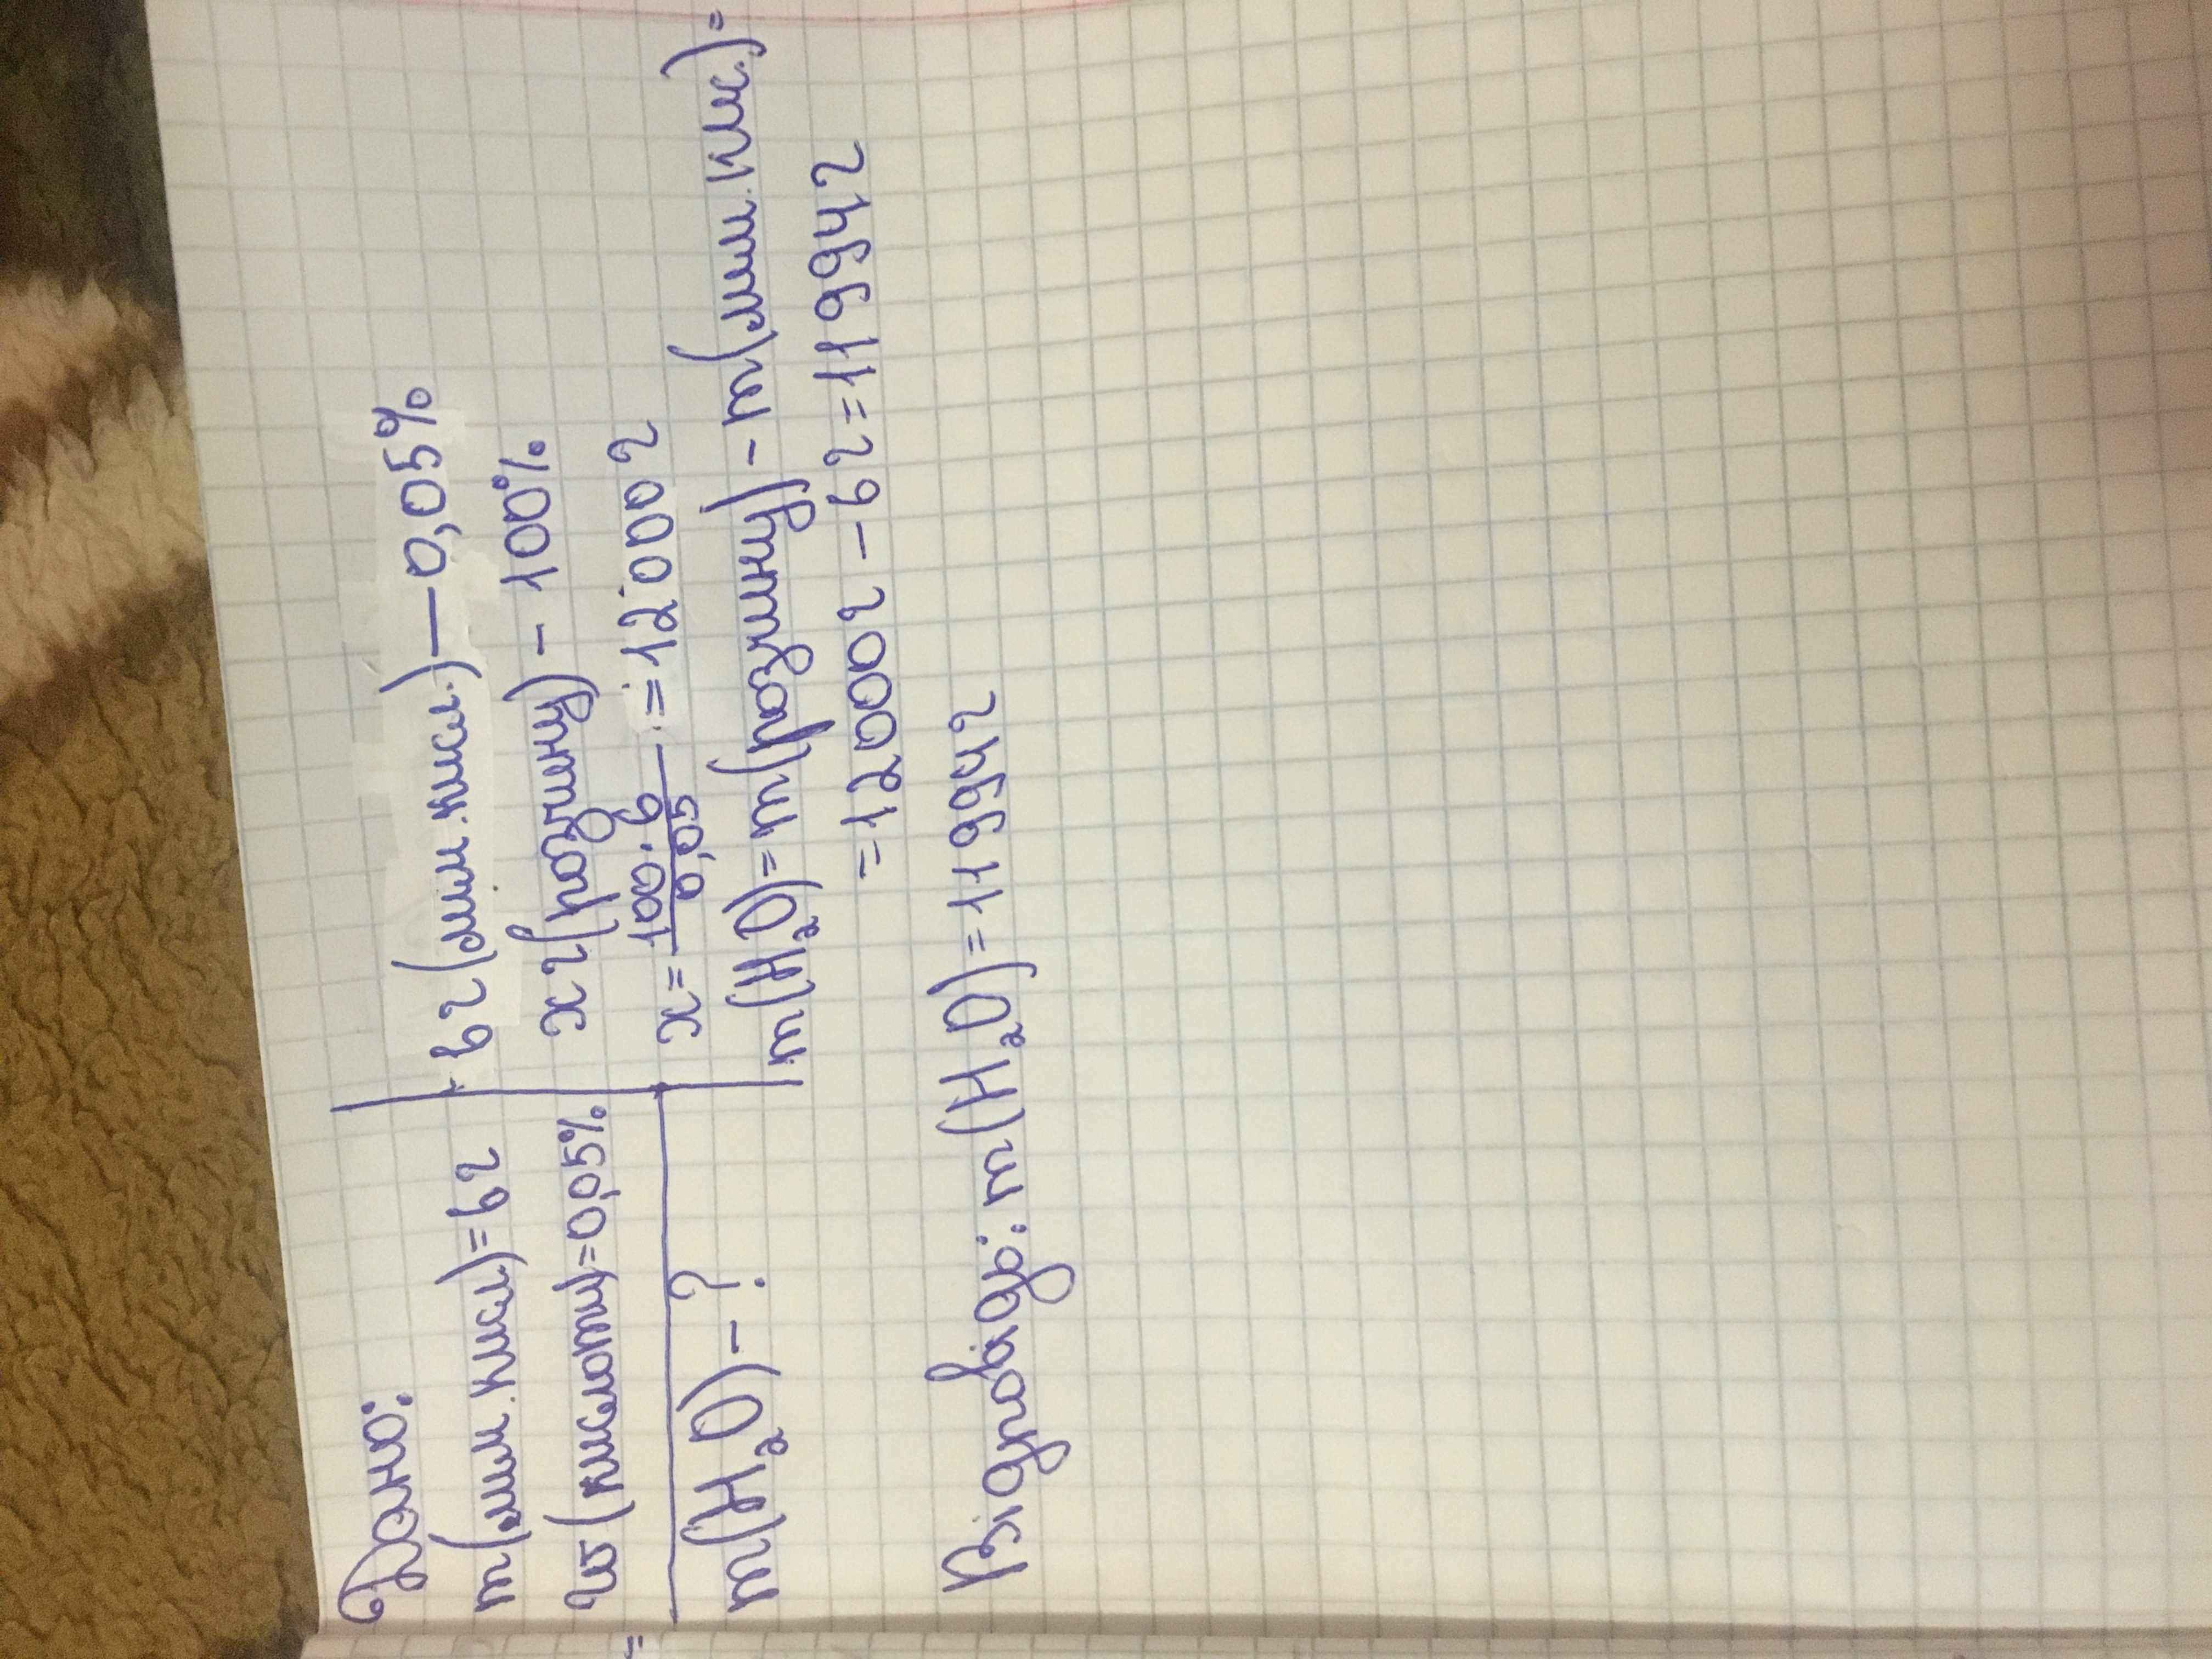 Дано:
m(лим.кисл)=6г
w(кислоти)=0,05%
m(H₂O)-?
6г(лим.кисл.)—0,05%
x г(розчину) - 100%
x=100·6/0,05=12000г
m(H₂O)=m(розчину)-m(лим.кис.)=
=12000г-6г=11994г
Відповідь: m(H₂O)=11994г